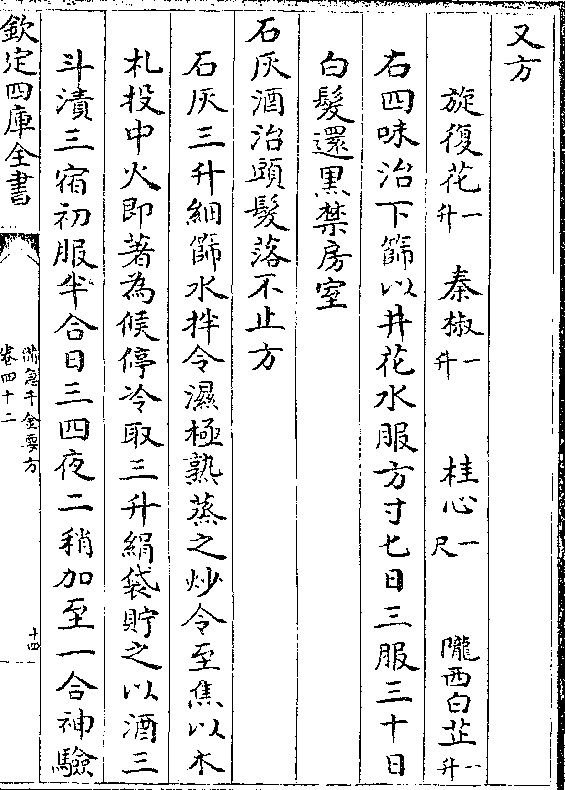 又方
旋復花一升　秦椒一升　桂心一尺　隴西白芷一升
右四味治下篩以井花水服方寸匕日三服三十日
白髮還黒禁房室
石灰酒治頭髮落不止方
石灰三升細篩水拌令濕極熟蒸之炒令至焦以木
札投中火即著為候停冷取三升絹袋貯之以酒三
斗漬三宿初服半合日三四夜二稍加至一合神驗
欽定四庫全書
備急千金要方
卷四十二
十四